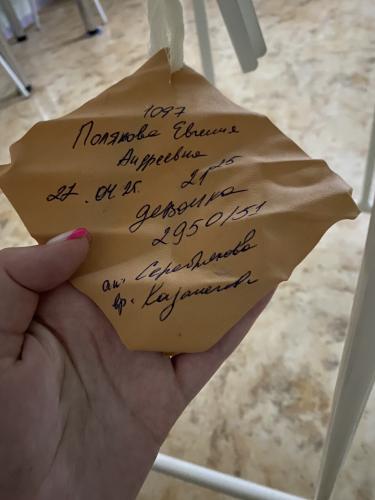 1097
Полякова Евгения
Андреевна
27.04.25 21 25
девочка
2950/51
ак. Серебрякова
вр.